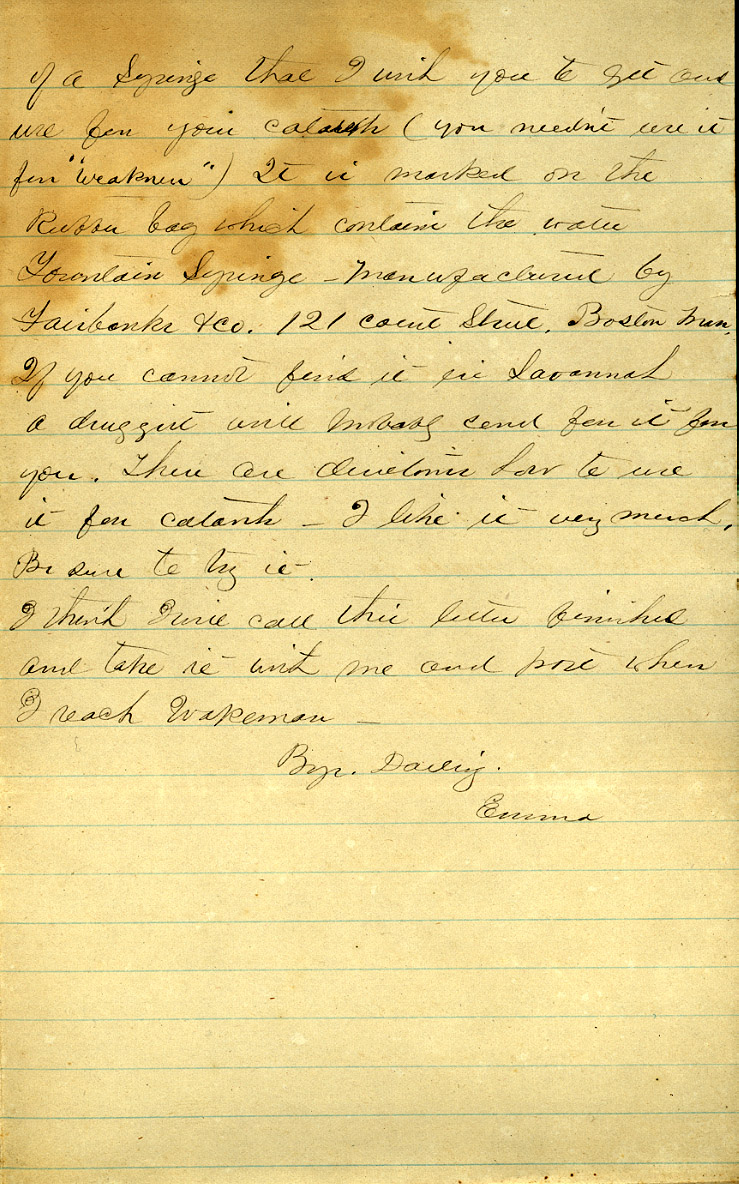 of a Syringe that I wish you to get and
use for your catarrh (you needn't use it
for "weakness") It is marked on the
Rubber bag which contains the water
Fountain Syringe – Manufactured by
Fairbanks & Co. 121 Court Street. Boston Mass.
If you cannot find it in Savannah
a druggist will probably send for it for
you. There are directions how to use
it for catarrh – I like it very much,
Be sure to try it.
I think I will call this letter finished
and take it with me and post when
I reach Wakeman –
Bye. Darling.
Emma